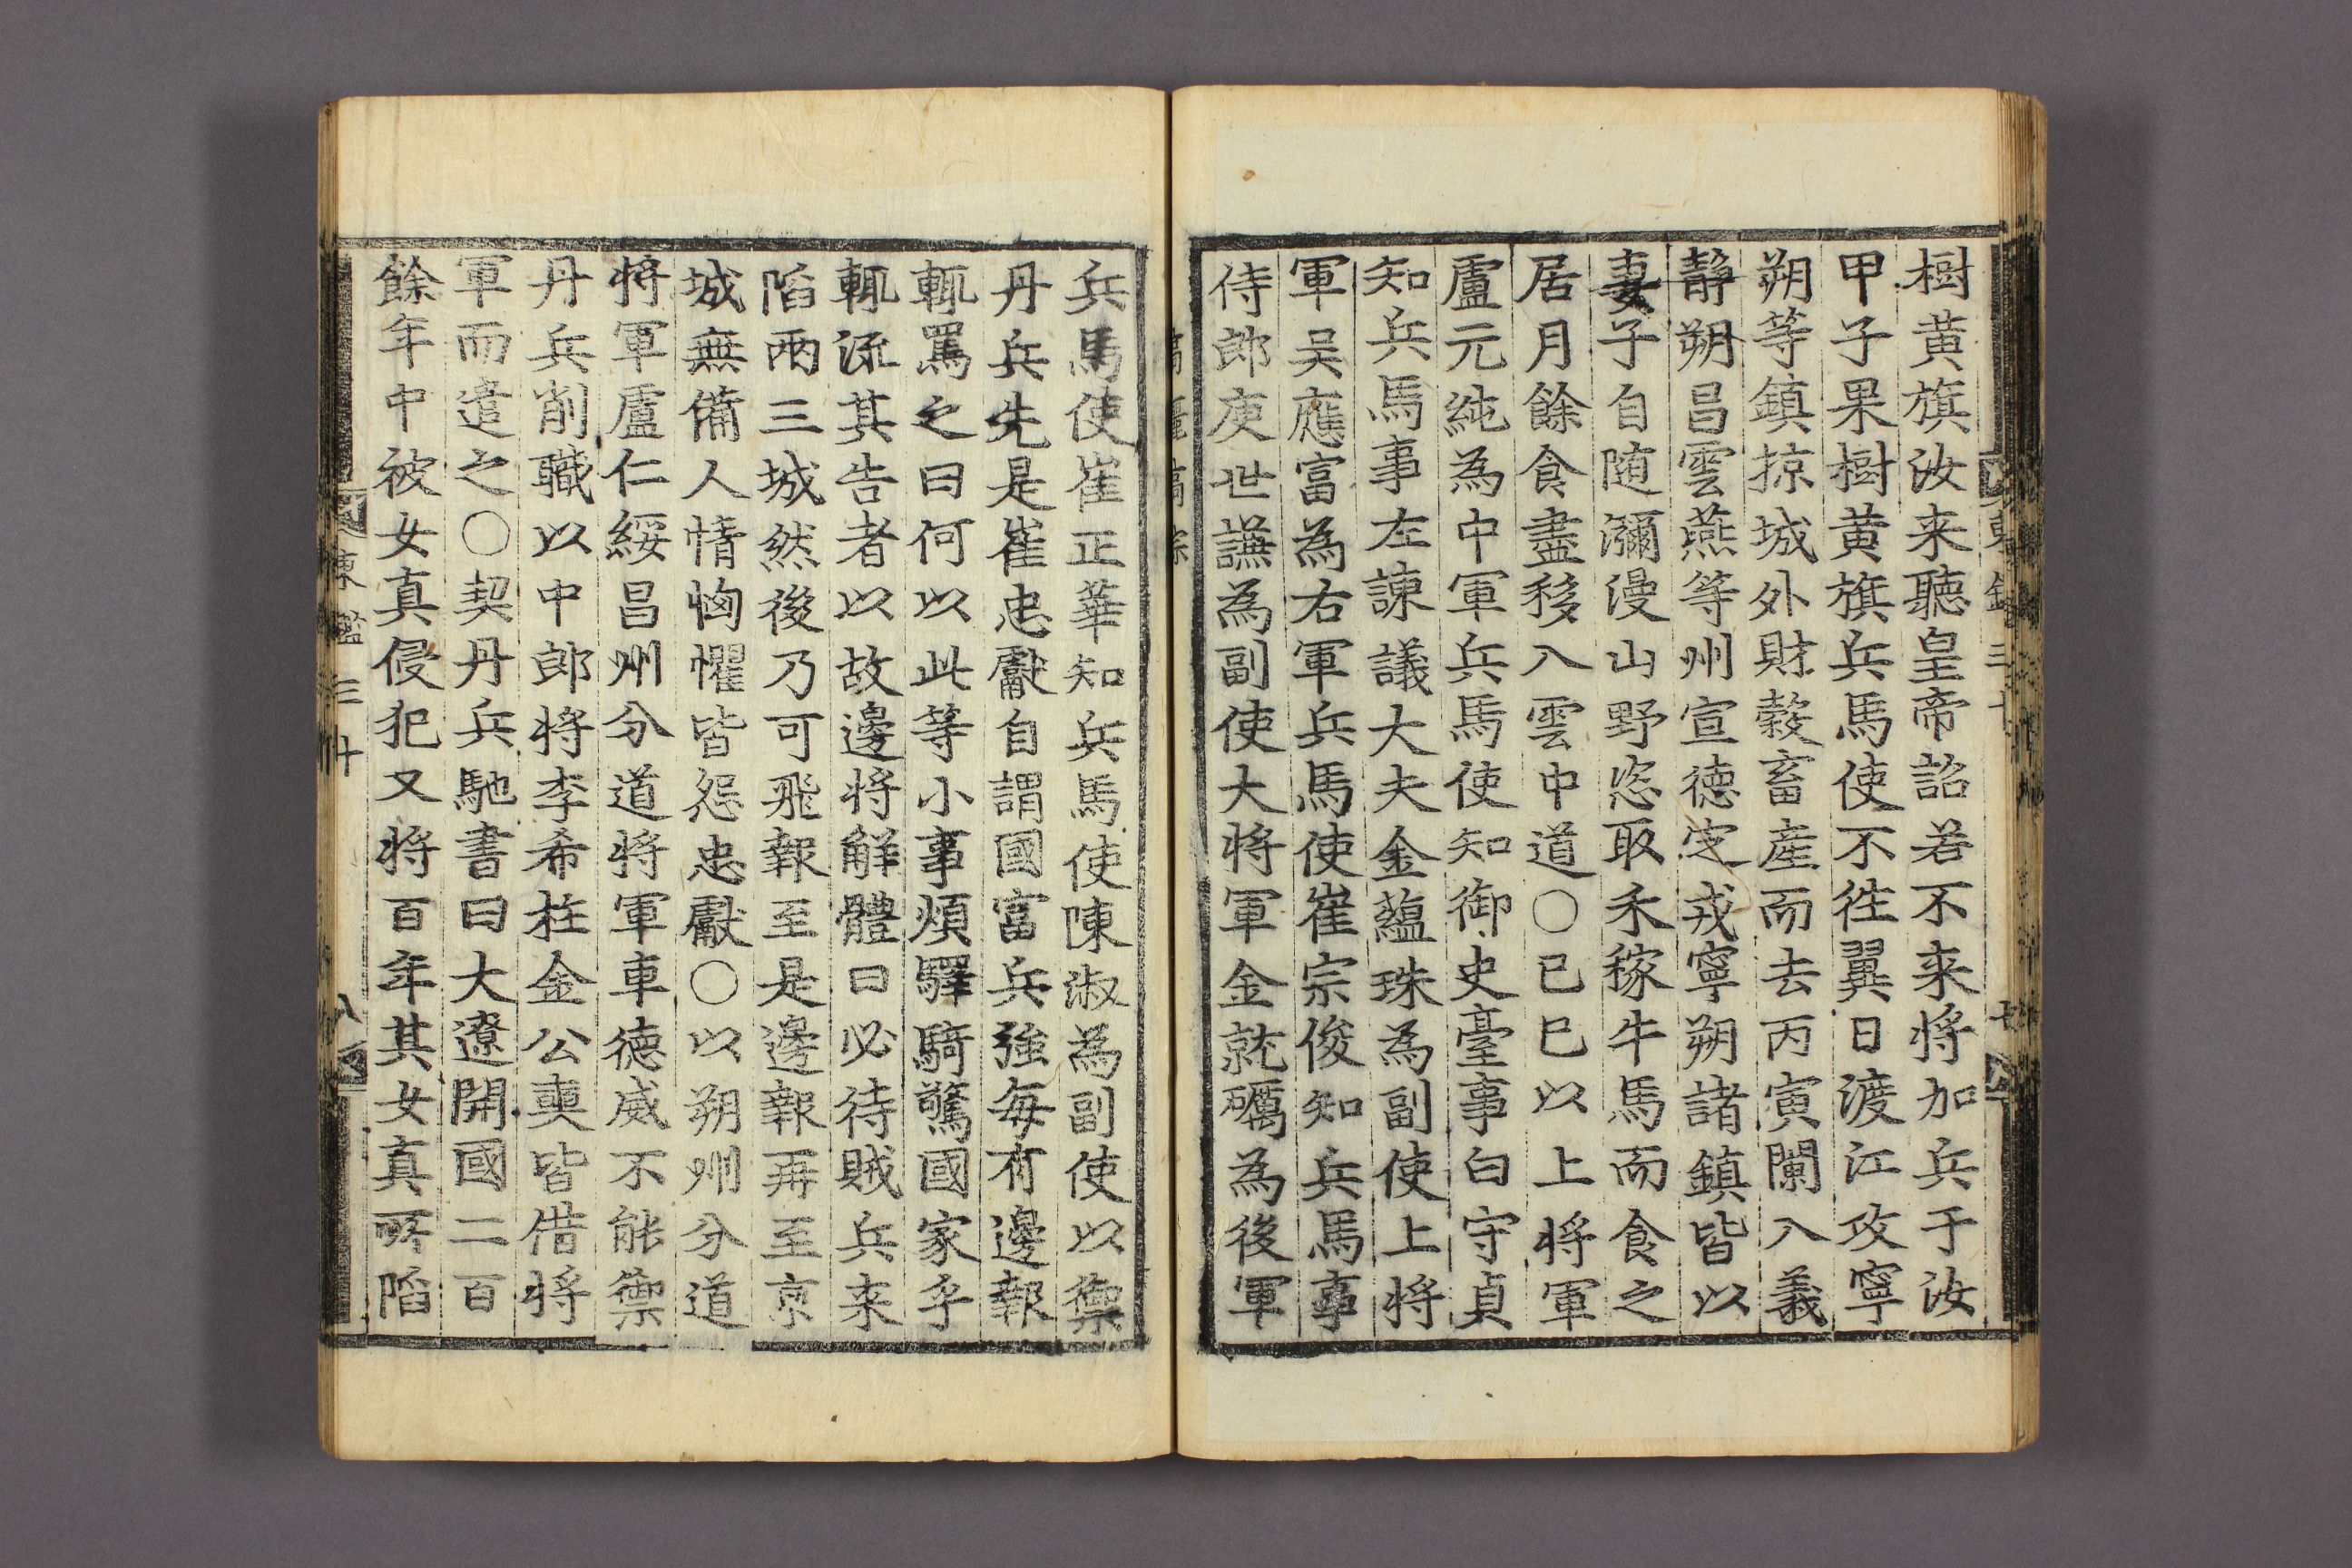 樹黃旗汝来聽皇帝詔若不来將加兵于汝
甲子果樹黃旗兵馬使不往翼日渡江攻寧
朔等鎮掠城外財穀畜產而去丙寅闌入義
静朔昌雲燕等州宣德定戎寧朔諸鎮皆以
妻子自随瀰漫山野恣取禾稼牛馬而食之
居月餘食盡移入雲中道〇己巳以上將軍
盧元純為中軍兵馬使知御史臺事白守貞
知兵馬事左諫議大夫金蘊珠為副使上將
軍吴應富為右軍兵馬使崔宗俊知兵馬事
侍郎庾世謙為副使大將軍金就礪為後軍
兵馬使崔正華知兵馬使陳淑為副使以禦
丹兵先是崔忠獻自謂國富兵強每有邊報
輒罵之曰何以此等小事煩驛騎驚國家乎
輒流其告者以故邊將解體曰必待賊兵来
陷兩三城然後乃可飛報至是邊報再至京
城無備人情恟懼皆怨忠獻〇以朔州分道
將軍盧仁綏昌州分道將軍車德威不能禦
丹兵削職以中郎將李希柱金公奭皆借將
軍而遣之〇契丹兵馳書曰大遼開國二百
餘年中被女真侵犯又將百年其女真所陷
東鑑三十
八